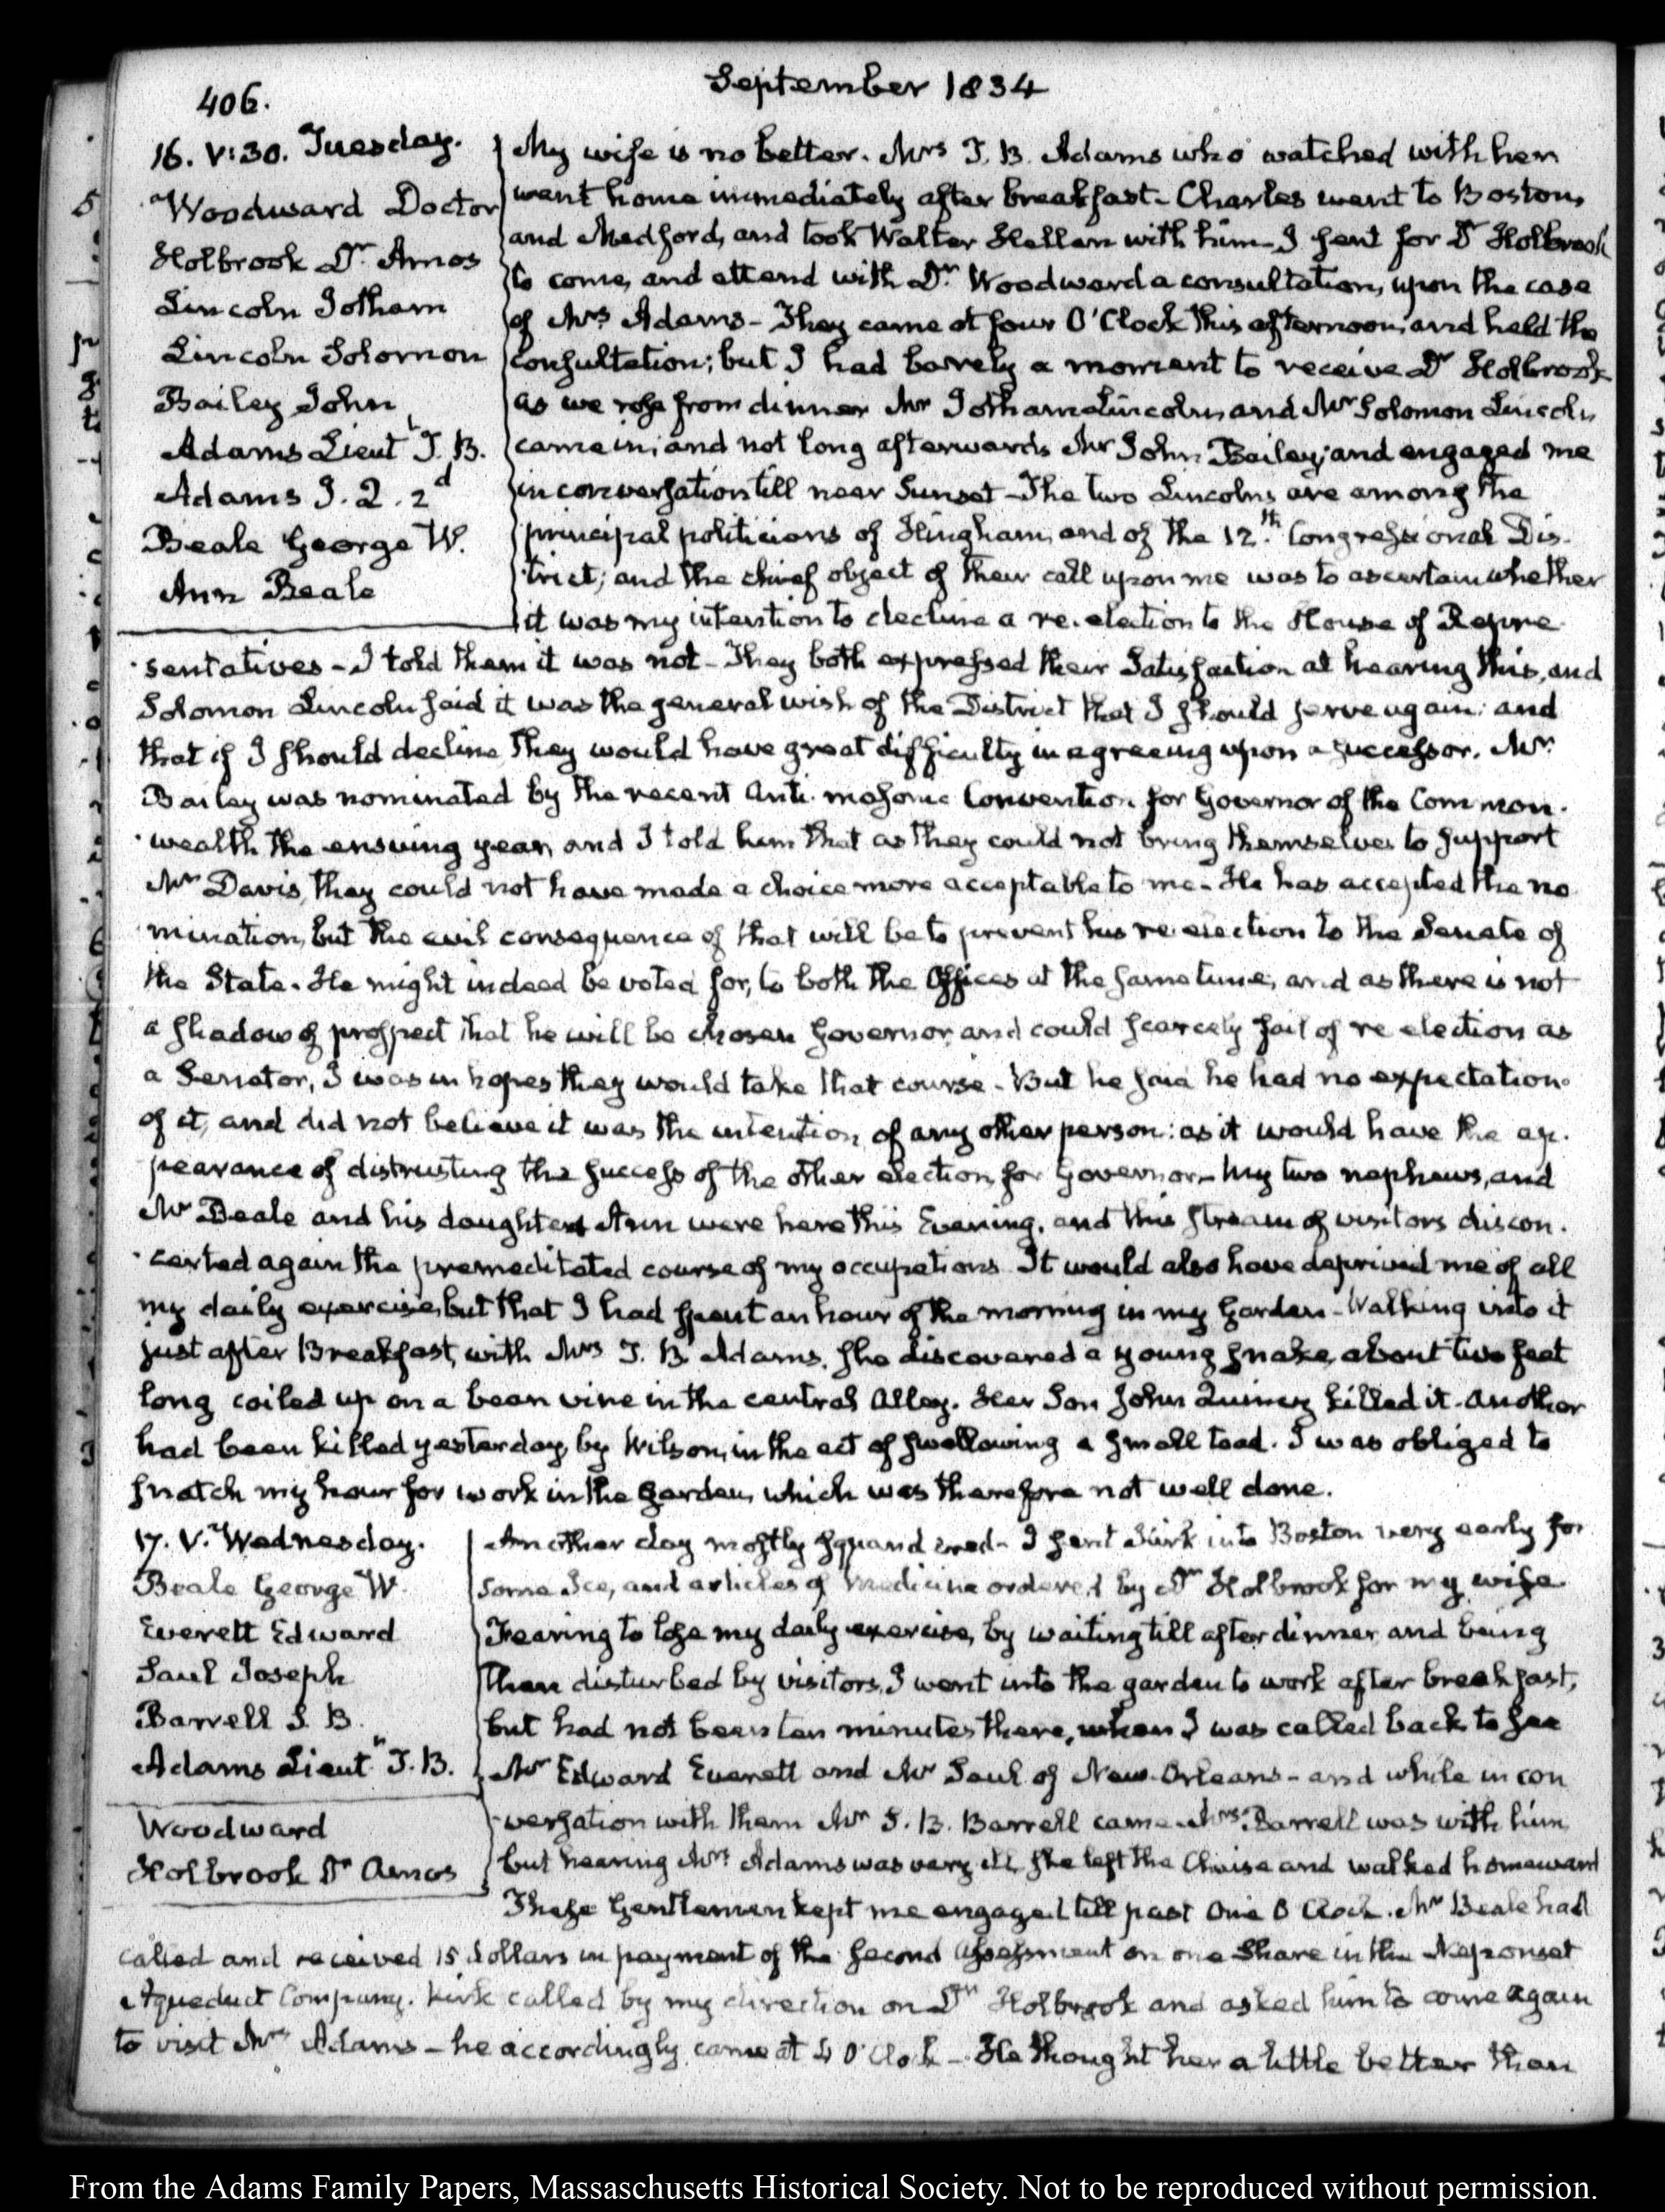 406.
September 1834
16. V:30. Tuesday.
Woodward Doctor
Holbrook Dr. Amos
Lincoln Jotham
Lincoln Solomon
Bailey John
Adams Lieut. T. B.
Adams J. Q. 2d
Beale George W.
Ann Beale
My wife is no better. Mrs T. B. Adams who watched with her
went home immediately after breakfast. Charles went to Boston,
and Medford, and took Walter Hellen with him. I sent for Dr Holbrook
to come, and attend with Dr. Woodward a consultation, upon the case
of Mrs Adams - They came at four O'Clock this afternoon, and held the
consultation; but I had barely a moment to receive Dr Holbrook
as we rose from dinner Mr Jotham Lincoln, and Mr Solomon Lincoln
came in; and not long afterwards Mr John Bailey; and engaged me
in conversation till near Sunset - The two Lincolns are among the
principal politicians of Hingham, and of the 12.th Congressional Dis-
trict; and the chief object of their call upon me was to ascertain whether
it was my intention to decline a re-election to the House of Repre-
sentatives - I told them it was not - They both expressed their Satisfaction at hearing this, and
Solomon Lincoln said it was the general wish of the District that I should serve again: and
that if I should decline they would have great difficulty in agreeing upon a successor. Mr.
Bailey was nominated by the recent Anti-masonic Convention for Governor of the Common-
wealth the ensuing year, and I told him that as they could not bring themselves to support
Mr Davis, they could not have made a choice more acceptable to me - He has accepted the no-
mination, but the evil consequence of that will be to prevent his re election to the Senate of
the State. He might indeed be voted for, to both the Offices at the same time, and as there is not
a shadow of prospect that he will be chosen Governor, and could scarcely fail of re election as
a Senator, I was in hopes they would take that course - But he said he had no expectation
of it, and did not believe it was the intention, of any other person: as it would have the ap-
pearance of distrusting the success of the other election, for Governor - My two nephews, and
Mr Beale and his daughter Ann were here this Evening, and this stream of visitors discon-
certed again the premeditated course of my occupations. It would also have deprived me of all
my daily exercise, but that I had spent an hour of the morning in my Garden - Walking into it
just after Breakfast, with Mrs T. B. Adams, she discovered a young snake, about two feet
long coiled up on a bean vine in the central Alley. Her Son John Quincy killed it. Another
had been killed yesterday, by Wilson, in the act of swallowing a small toad. I was obliged to
snatch my hour for work in the Garden, which was therefore not well done.
17. V. Wednesday.
Beale George W.
Everett Edward
Saul Joseph
Barrell S. B.
Adams Lieut. T. B.
Woodward
Holbrook Dr Amos
Another day mostly squandered - I sent Kirk into Boston very early for
some Ice, and articles of Medicine ordered by Dr Holbrook for my wife
Fearing to lose my daily exercise, by waiting till after dinner, and being
then disturbed by visitors, I went into the garden to work after breakfast,
but had not been ten minutes there, when I was called back to see
Mr Edward Everett and Mr Saul of New-Orleans - and while in con
-versation with them Mr S. B. Barrell came - Mrs Barrell was with him
but hearing Mrs Adams was very ill, she left the Chaise and walked homeward
These Gentlemen kept me engaged till past One O Clock. Mr Beale had
called and received 15 dollars in payment of the second Assessment on one Share in the Neponset
Aqueduct Company. Kirk called by my direction on Dr Holbrook and asked him to come again
to visit Mrs Adams - he accordingly came at 4 O'Clock - He thought her a little better than
From the Adams Family Papers, Massachusetts Historical Society. Not to be reproduced without permission.